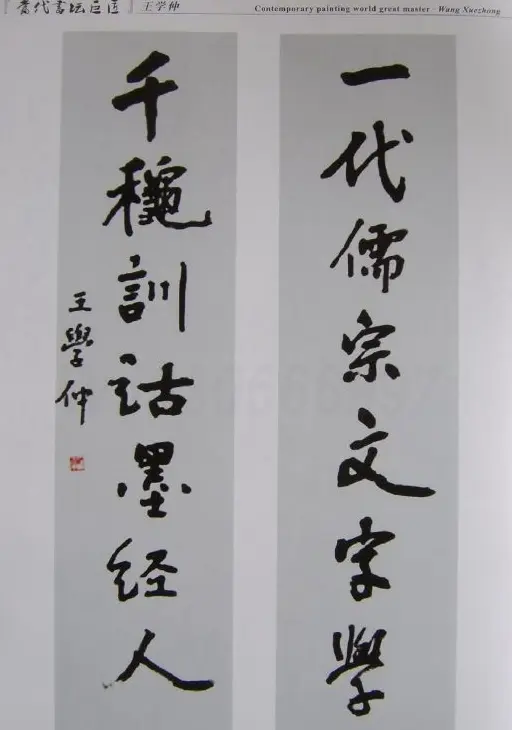 『当代书坛巨匠』王学仲
Contemporary painting world great master · Wang Xuezhong
一代儒宗文字學
千穐訓詁墨经人
王學仲